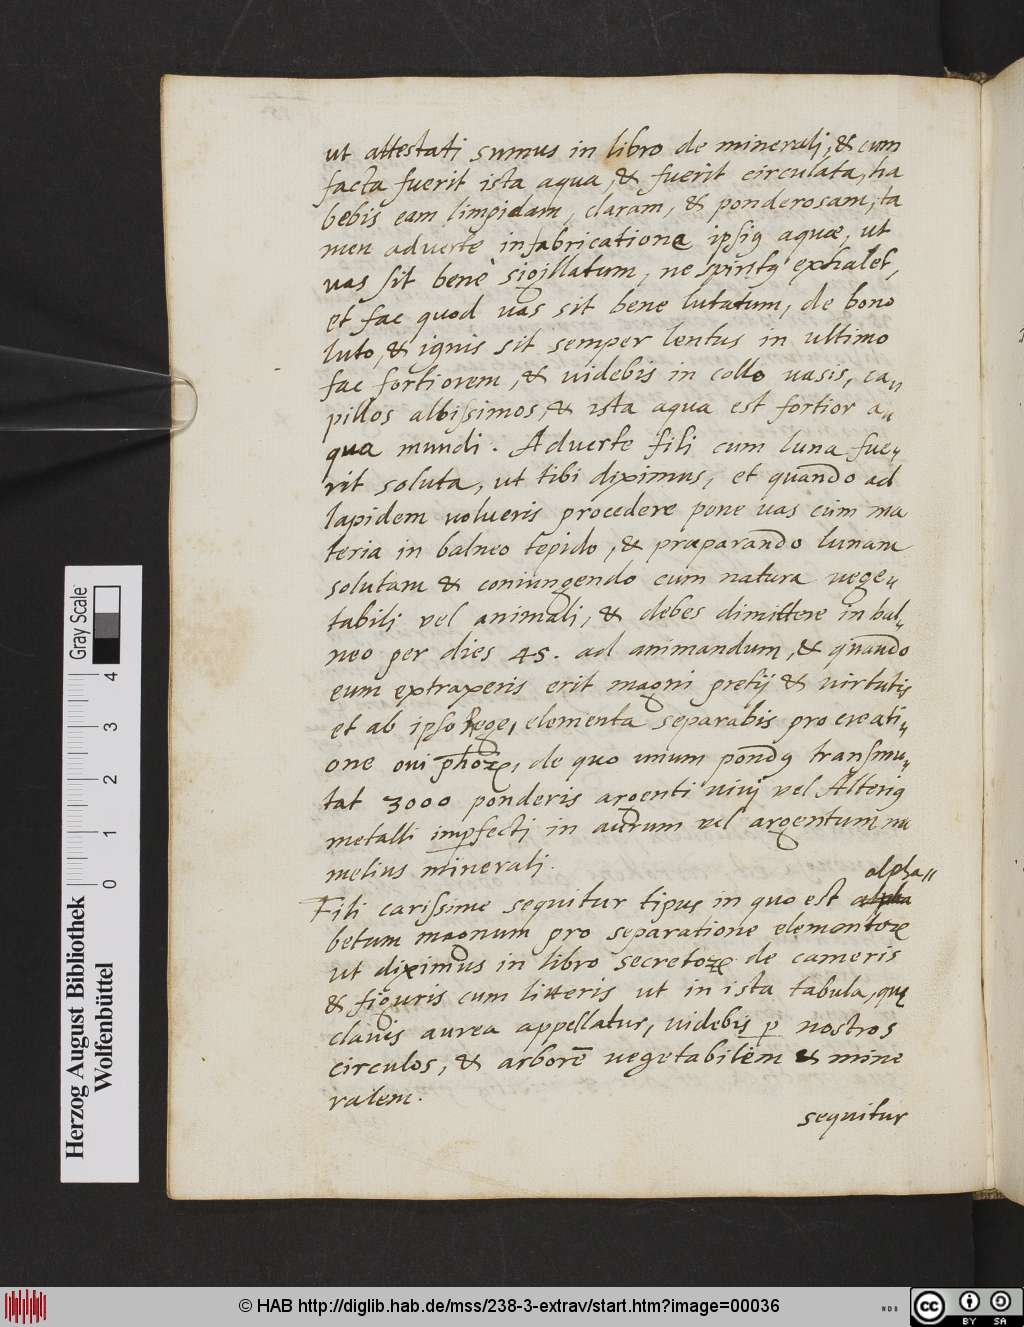 ut attestati sumus in libro de minerali, & cum
facta fuerit ista aqua, & fuerit circulata, ha
bebis eam limpidam, claram, & ponderosam, ta
men adverte in fabricatione ipsiꝰ aquæ, ut
vas sit bene sigillatum, ne spiritꝰ exhalet,
et fac quod vas sit bene lutatum, de bono
luto, & ignis sit semper lentus in ultimo
fac fortiorem, & videbis in collo vasis, ca„
pillos albissimos, & ista aqua est fortior a„
qua mundi. Adverte fili cum luna fue„
rit soluta, ut tibi diximus, et quando ad
lapidem volueris procedere pone vas cum ma
teria in balneo tepido, & præparando lunam
solutam & coniungendo cum natura vege„
tabili vel animali, & debes dimittere in bal„
neo per dies 45. ad animandum, & quando
eum extraxeris erit magni pretij & virtutis
et ab ipso Rege, elementa separabis pro creati„
one ovi phõrꝫ, de quo unum pondꝰ transmu„
tat 3000 ponderis argenti vivi vel Alteriꝰ
metalli imperfecti in aurum vel argentum
melius minerali.
alpha„
Fili carissime sequitur tipus in quo est alpha
betum magnum pro separatione elementorꝫ
ut diximus in libro secretorꝫ de cameris
& figuris cum litteris ut in ista tabula, quę
clavis aurea appellatur, videbis p nostros
circulos, & arborẽ vegetabilem & mine
ralem.
sequitur
Herzog August Bibliothek
Wolfenbüttel
Gray Scale
0 1 2 3 4
© HAB http://diglib.hab.de/mss/238-3-extrav/start.htm?image=00036
NDB
cc BY SA